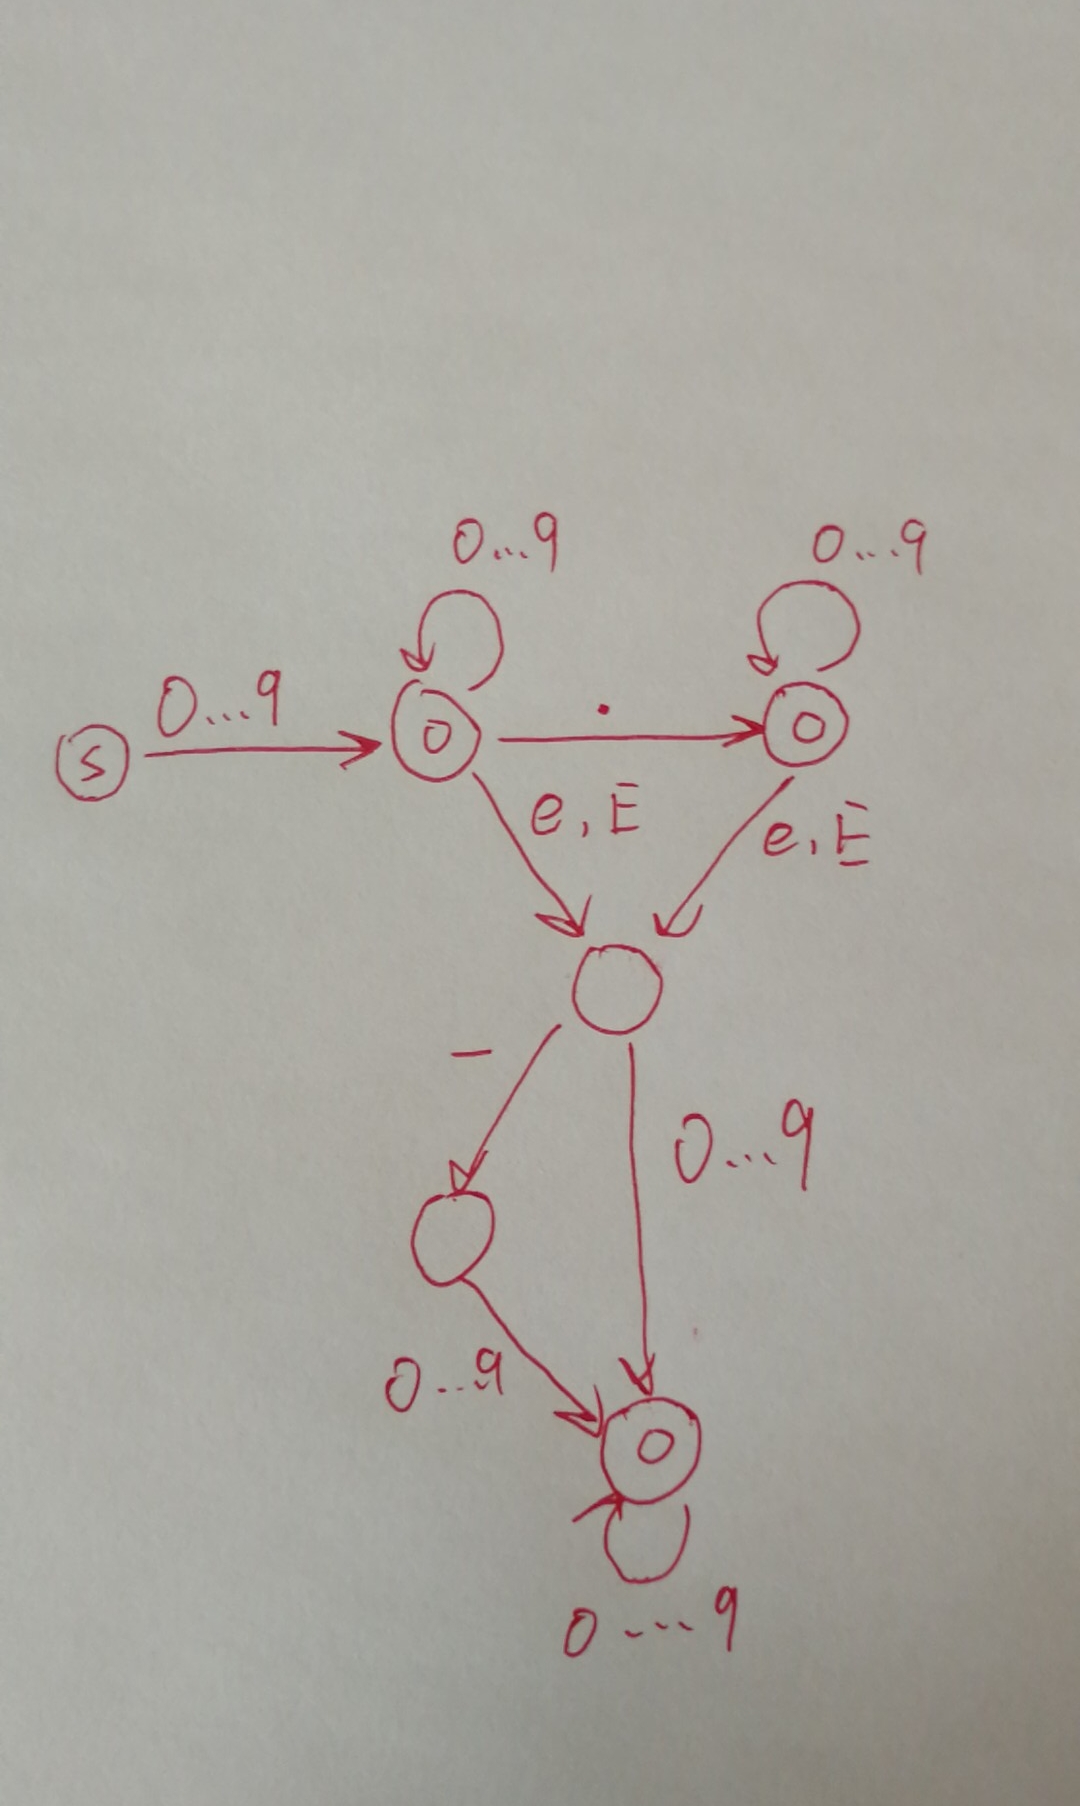 0...9
0...9
0...9
S
.
e, E
e, E
–
0...9
0...9
0....9